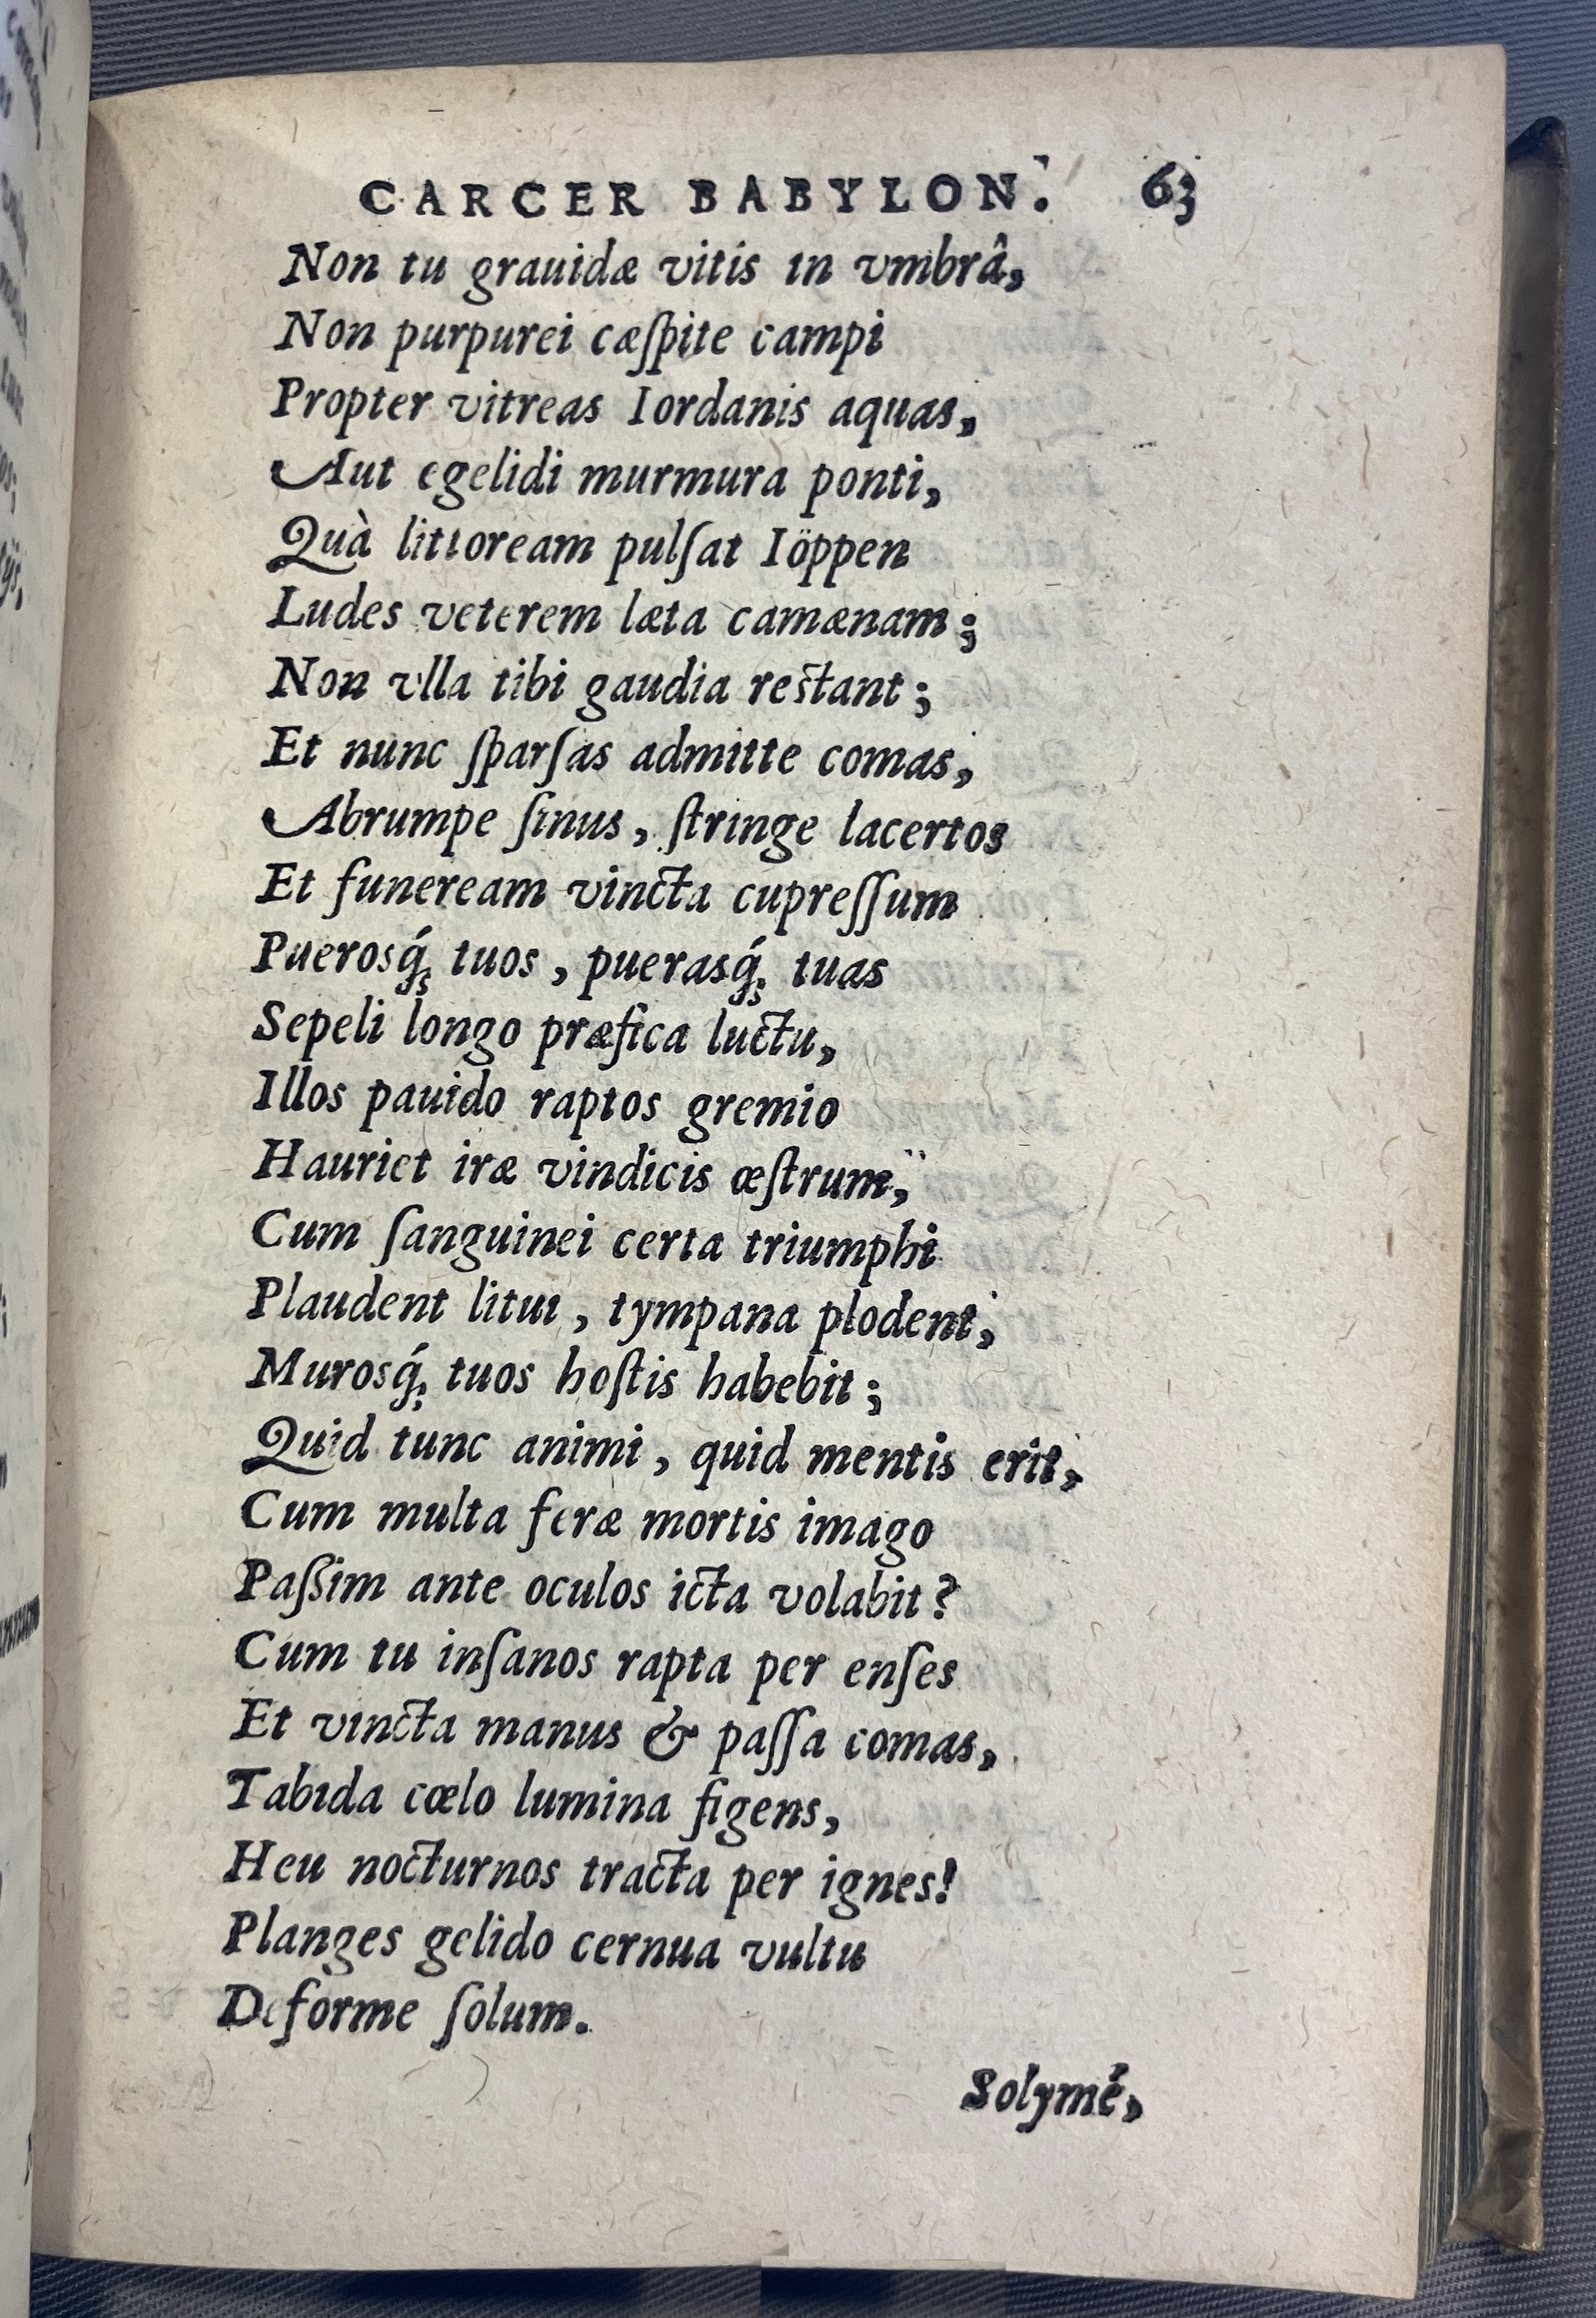 CARCER BABYLON. 63
Non tu grauidæ vitis in vmbrâ,
Non purpurei cæſpite campi
Propter vitreas Iordanis aquas,
Aut egelidi murmura ponti,
Quà littoream pulſat Iöppen
Ludes veterem læta camænam;
Non vlla tibi gaudia reſtant;
Et nunc ſparſas admitte comas,
Abrumpe ſinus, ſtringe lacertos
Et funeream vincta cupreſſum
Puerosq́; tuos, puerasq́; tuas
Sepeli longo præfica luctu,
Illos pauido raptos gremio
Hauriet iræ vindicis œſtrum,
Cum ſanguinei certa triumphi
Plaudent litui, tympana plodent,
Murosq́; tuos hoſtis habebit;
Quid tunc animi, quid mentis erit,
Cum multa feræ mortis imago
Paſsim ante oculos icta volabit?
Cum tu inſanos rapta per enſes
Et vincta manus & paſſa comas,
Tabida cœlo lumina figens,
Heu nocturnos tracta per ignes!
Planges gelido cernua vultu
Deforme ſolum.
Solymé,